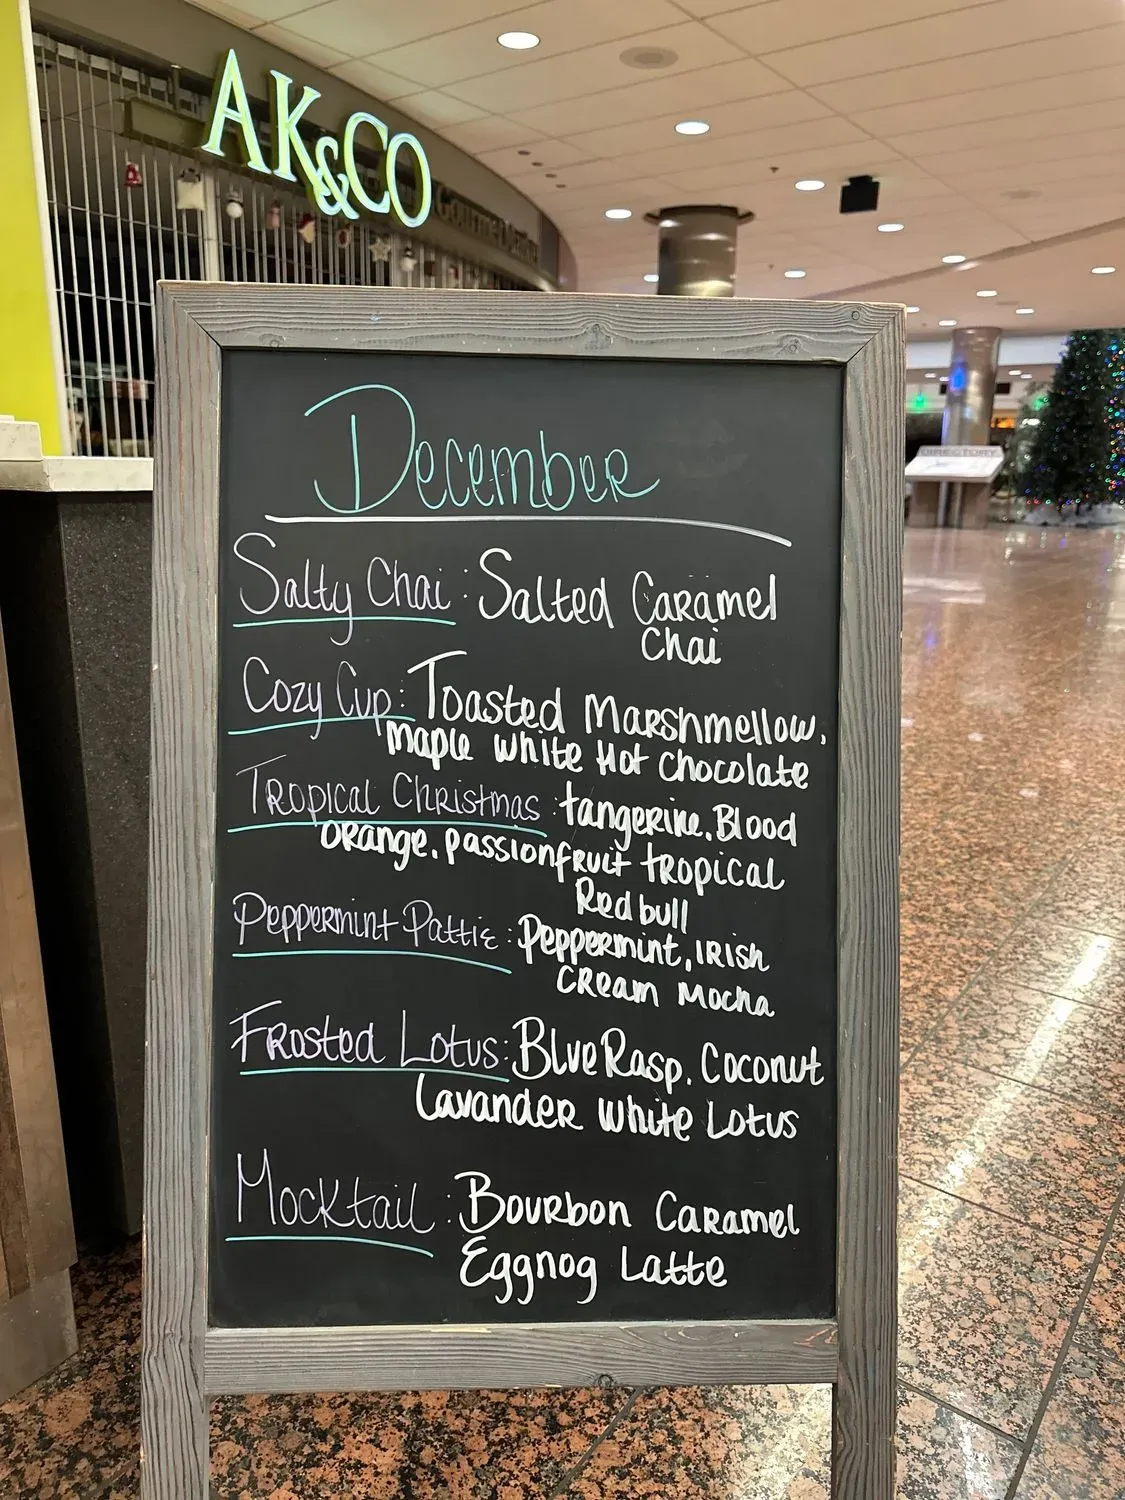 AK&CO
Gourmet Market
DIRECTORY
December
Salty Chai: Salted Caramel
Chai
Cozy Cup: Toasted Marshmellow,
Maple White Hot Chocolate
Tropical Christmas: tangerine, Blood
Orange, passionfruit tropical
Redbull
Peppermint Pattie: Peppermint, Irish
Cream Mocha
Frosted Lotus: Blue Rasp, Coconut
Lavander White Lotus
Mocktail: Bourbon Caramel
Eggnog Latte